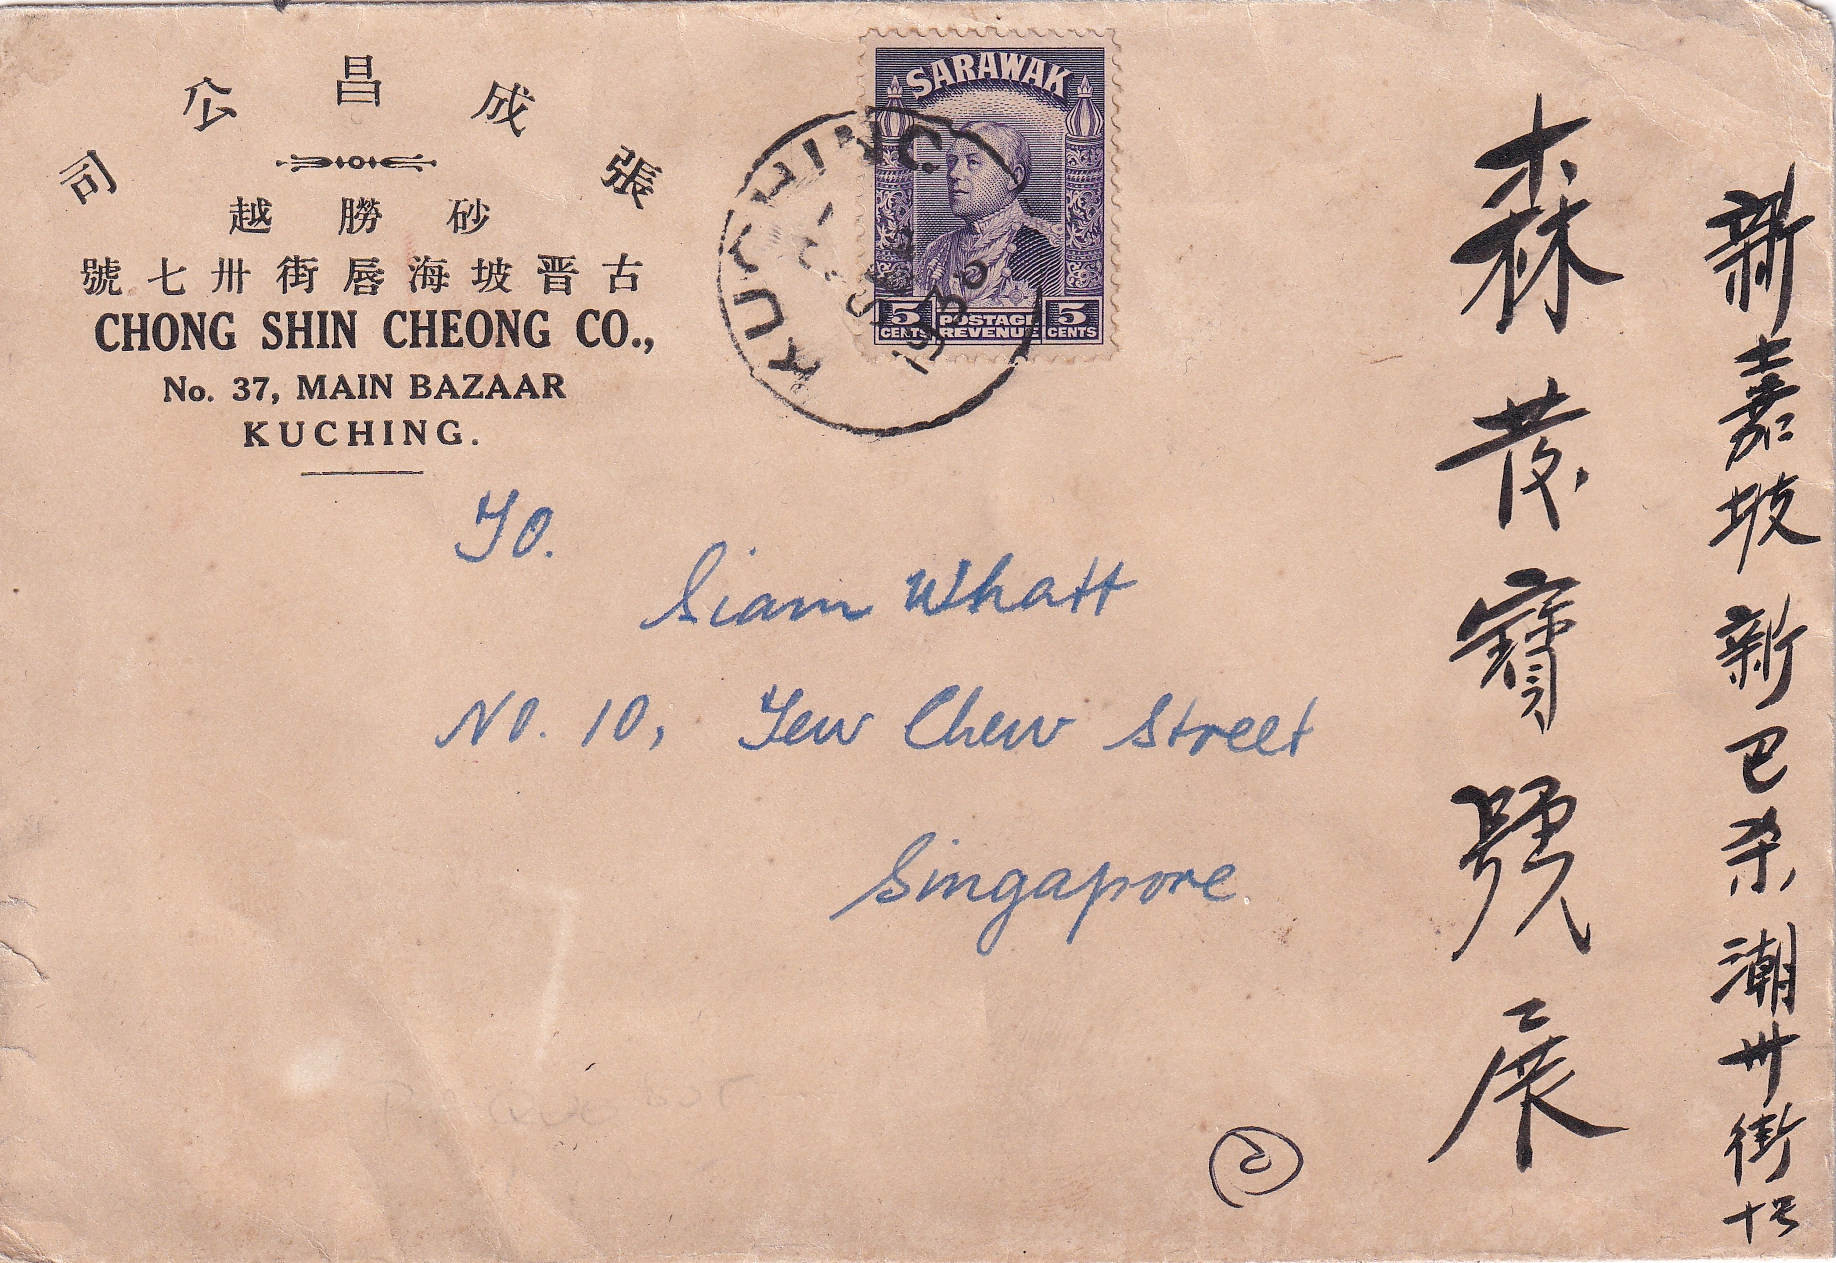 張成昌公司
砂朥越
古晋坡海唇街卅七號
CHONG SHIN CHEONG CO.,
No. 37, MAIN BAZAAR
KUCHING.
SARAWAK
5 CENTS
POSTAGE REVENUE
5 CENTS
KUCHING
1938
To.
Siam Whatt
No. 10, Tew Chew Street
Singapore
新嘉坡新巴杀潮州街十号
森茂寶號展